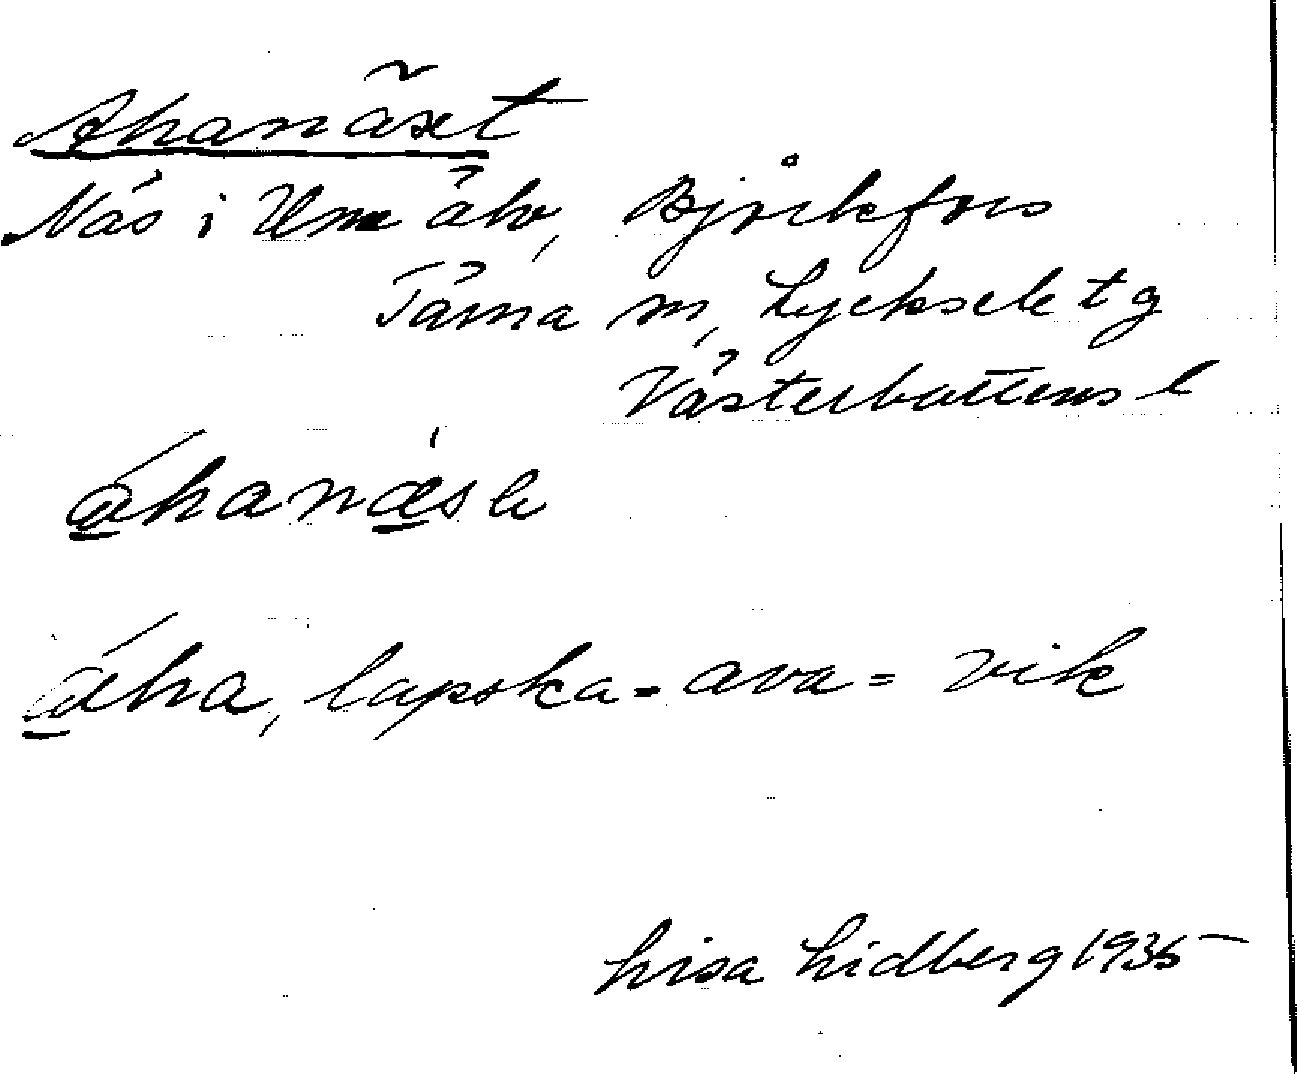 Ahanäset
Näs i Ume älv, Björkfors
Tärna sn, Lycksele tg
Västerbottens l
áhanæse
áha, lapska = ava = vik
Lisa Lidberg 1935